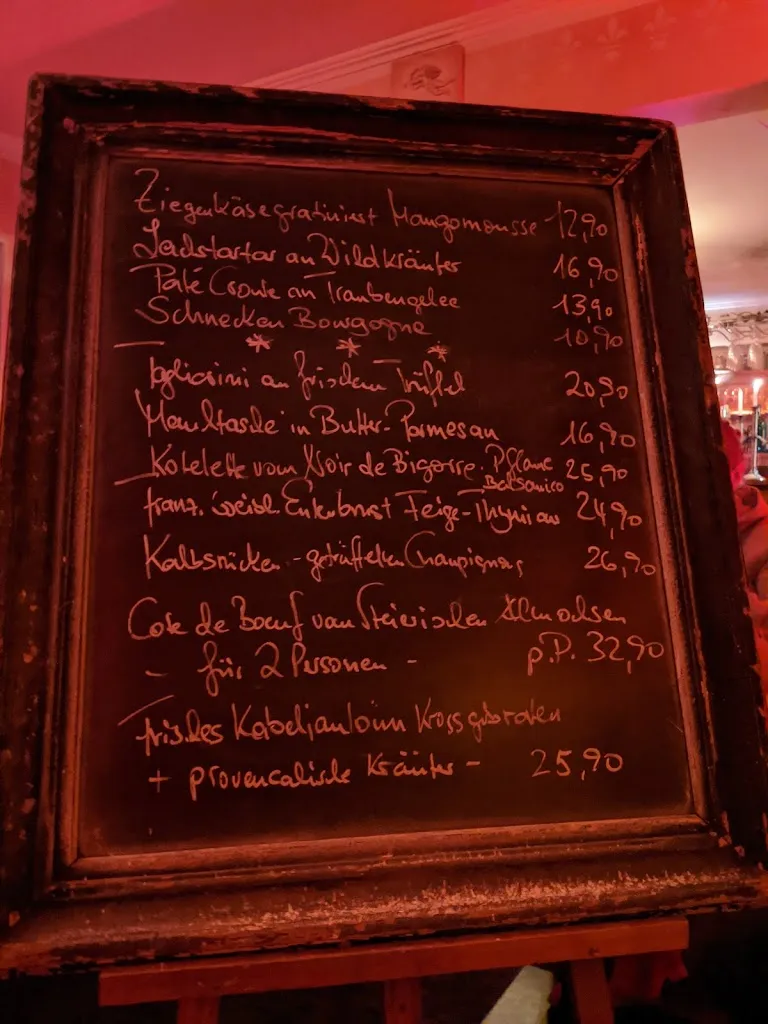 Ziegenkäse gratiniert Mangomousse 12,90
Lachstartar an Wildkräuter 16,90
Paté Croute an Traubengelee 13,90
Schnecken Bourgogne 10,90
* * *
Tagliorini an frischem Trüffel 20,90
Maultasche in Butter-Parmesan 16,90
Kotelette vom Noir de Bigorre. Pflaume 25,90
Balsamico
franz. weibl. Entenbrust Feige-Thymian 24,90
Kalbsrücken - getrüffelten Champignons 26,90
Cote de Boeuf vom Steierischen Almochsen
- für 2 Personen - p.P. 32,90
frisches Kabeljauloin kross gebraten
+ provencalische Kräuter - 25,90